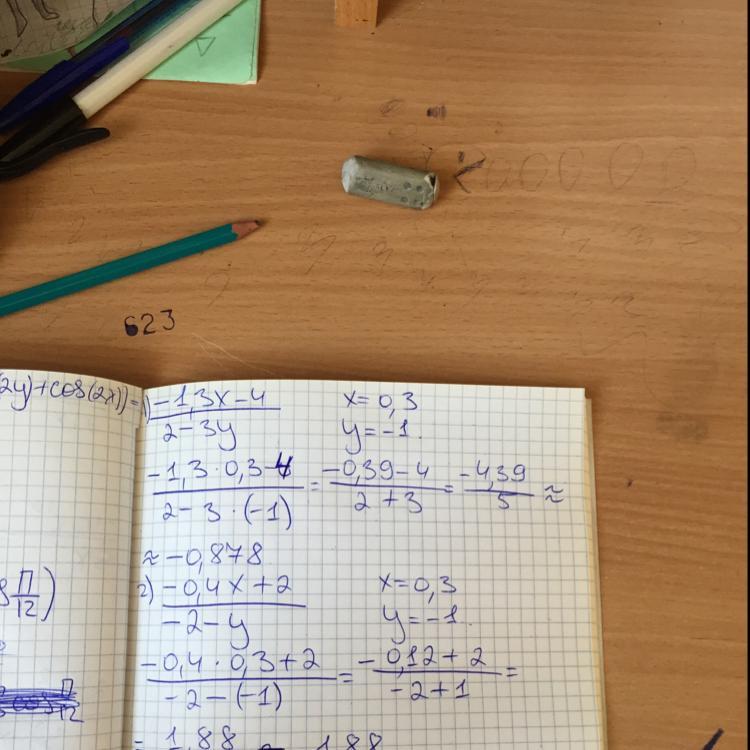 623
2y)+cos(2x))=
1) (-1,3x-4)/(2-3y)   x=0,3
y=-1.
(-1,3·0,3-4)/(2-3·(-1)) = (-0,39-4)/(2+3) = (-4,39)/5 ≈
≈ -0,878
2) (-0,4x+2)/(-2-y)   x=0,3
y=-1
(-0,4·0,3+2)/(-2-(-1)) = (-0,12+2)/(-2+1) =
π/12)
= 1,88 1,88